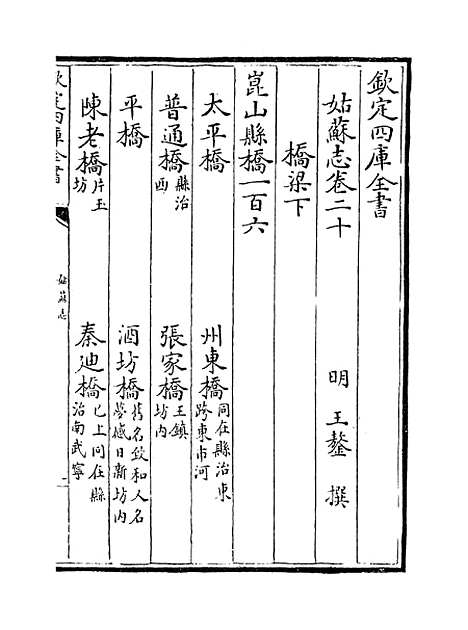 欽定四庫全書
姑蘇志卷二十
明 王鏊 撰
橋梁下
崑山縣橋一百六
太平橋 州東橋同在縣治東跨東市河
普通橋縣治西 張家橋王鎮坊内
平橋 酒坊橋舊名政和人名夢感日新坊内
陳老橋片玉坊 秦廸橋已上同在縣治南武寧
欽定四庫全書
姑蘇志
一